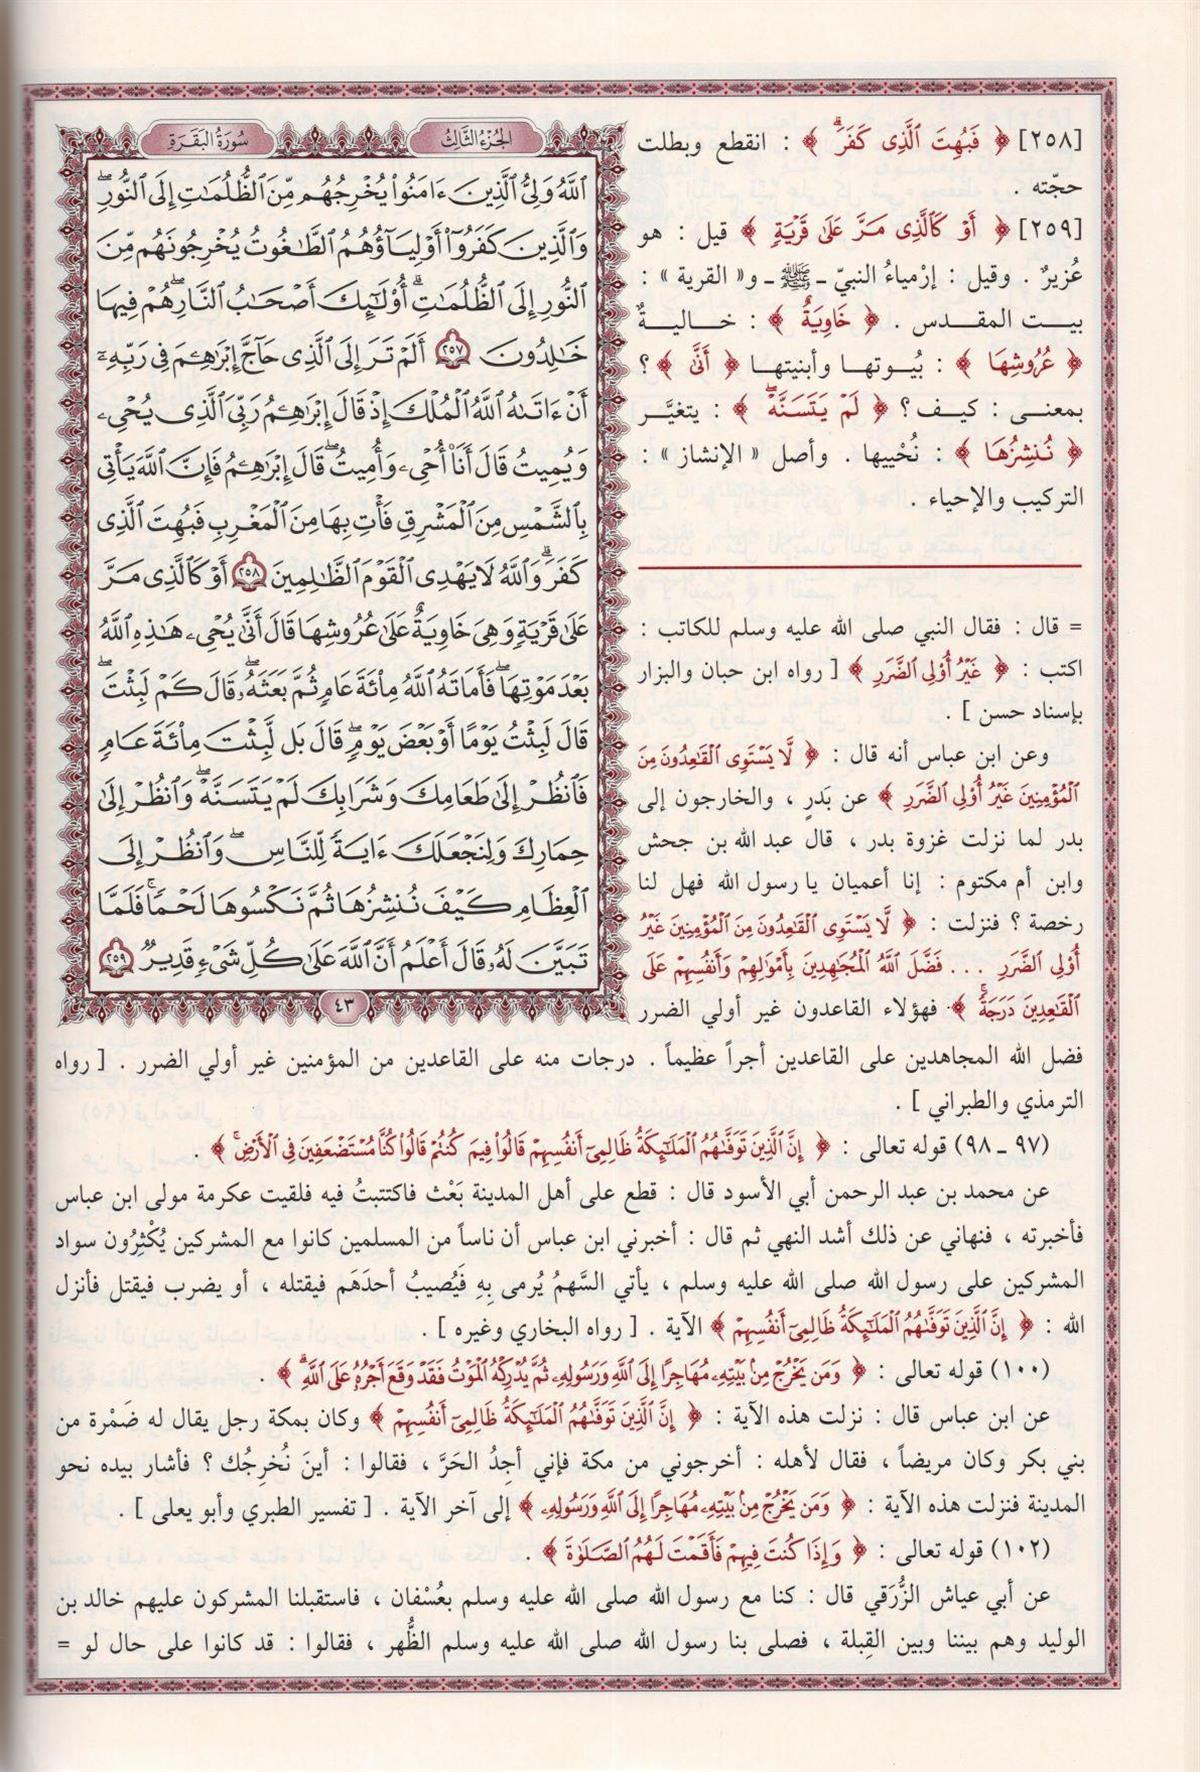 الجزء الثالث
سورة البقرة
ٱللَّهُ وَلِيُّ ٱلَّذِينَ ءَامَنُواْ يُخْرِجُهُم مِّنَ ٱلظُّلُمَٰتِ إِلَى ٱلنُّورِۖ
وَٱلَّذِينَ كَفَرُوٓاْ أَوْلِيَآؤُهُمُ ٱلطَّٰغُوتُ يُخْرِجُونَهُم مِّنَ
ٱلنُّورِ إِلَى ٱلظُّلُمَٰتِۗ أُوْلَٰٓئِكَ أَصْحَٰبُ ٱلنَّارِۖ هُمْ فِيهَا
خَٰلِدُونَ ٢٥٧ أَلَمْ تَرَ إِلَى ٱلَّذِى حَآجَّ إِبْرَٰهِـۧمَ فِى رَبِّهِۦٓ
أَنْ ءَاتَىٰهُ ٱللَّهُ ٱلْمُلْكَ إِذْ قَالَ إِبْرَٰهِـۧمُ رَبِّىَ ٱلَّذِى يُحْىِۦ
وَيُمِيتُ قَالَ أَنَا۠ أُحْىِۦ وَأُمِيتُۖ قَالَ إِبْرَٰهِـۧمُ فَإِنَّ ٱللَّهَ يَأْتِى
بِٱلشَّمْسِ مِنَ ٱلْمَشْرِقِ فَأْتِ بِهَا مِنَ ٱلْمَغْرِبِ فَبُهِتَ ٱلَّذِى
كَفَرَۗ وَٱللَّهُ لَا يَهْدِى ٱلْقَوْمَ ٱلظَّٰلِمِينَ ٢٥٨ أَوْ كَٱلَّذِى مَرَّ
عَلَىٰ قَرْيَةٍ وَهِىَ خَاوِيَةٌ عَلَىٰ عُرُوشِهَا قَالَ أَنَّىٰ يُحْىِۦ هَٰذِهِ ٱللَّهُ
بَعْدَ مَوْتِهَاۖ فَأَمَاتَهُ ٱللَّهُ مِا۟ئَةَ عَامٍ ثُمَّ بَعَثَهُۥۖ قَالَ كَمْ لَبِثْتَۖ
قَالَ لَبِثْتُ يَوْمًا أَوْ بَعْضَ يَوْمٍۖ قَالَ بَل لَّبِثْتَ مِا۟ئَةَ عَامٍ
فَٱنظُرْ إِلَىٰ طَعَامِكَ وَشَرَابِكَ لَمْ يَتَسَنَّهْۖ وَٱنظُرْ إِلَىٰ
حِمَارِكَ وَلِنَجْعَلَكَ ءَايَةً لِّلنَّاسِۖ وَٱنظُرْ إِلَى
ٱلْعِظَامِ كَيْفَ نُنشِزُهَا ثُمَّ نَكْسُوهَا لَحْمًاۚ فَلَمَّا
تَبَيَّنَ لَهُۥ قَالَ أَعْلَمُ أَنَّ ٱللَّهَ عَلَىٰ كُلِّ شَىْءٍ قَدِيرٌ ٢٥٩
٤٣
[٢٥٨] ﴿ فَبُهِتَ ٱلَّذِى كَفَرَۗ ﴾ : انقطع وبطلت
حجّته .
[٢٥٩] ﴿ أَوْ كَٱلَّذِى مَرَّ عَلَىٰ قَرْيَةٍ ﴾ قيل : هو
عُزيرٌ . وقيل : إرْمياءُ النبيّ ـ ﷺ ـ و« القرية » :
بيت المقدس . ﴿ خَاوِيَةٌ ﴾ : خالية
﴿ عُرُوشِهَا ﴾ : بُيوتها وأبنيتها ﴿ أَنَّىٰ ﴾ ؟
بمعنى : كيف ؟ ﴿ لَمْ يَتَسَنَّهْۖ ﴾ : يتغيَّر
﴿ نُنشِزُهَا ﴾ : نُحْييها . وأصل « الإنشاز » :
التركيب والإحياء .
= قال : فقال النبي صلى الله عليه وسلم للكاتب :
اكتب : ﴿ غَيْرُ أُوْلِى ٱلضَّرَرِ ﴾ [ رواه ابن حبان والبزار
بإسناد حسن ] .
وعن ابن عباس أنه قال : ﴿ لَّا يَسْتَوِى ٱلْقَٰعِدُونَ مِنَ
ٱلْمُؤْمِنِينَ غَيْرُ أُوْلِى ٱلضَّرَرِ ﴾ عن بَدرٍ ، والخارجون إلى
بدر لما نزلت غزوة بدر ، قال عبد الله بن جحش
وابن أم مكتوم : إنا أعميان يا رسول الله فهل لنا
رخصة ؟ فنزلت : ﴿ لَّا يَسْتَوِى ٱلْقَٰعِدُونَ مِنَ ٱلْمُؤْمِنِينَ غَيْرُ
أُوْلِى ٱلضَّرَرِ ... فَضَّلَ ٱللَّهُ ٱلْمُجَٰهِدِينَ بِأَمْوَٰلِهِمْ وَأَنفُسِهِمْ عَلَى
ٱلْقَٰعِدِينَ دَرَجَةًۚ ﴾ . فهؤلاء القاعدون غير أولي الضرر
فضل الله المجاهدين على القاعدين أجراً عظيماً . درجات منه على القاعدين من المؤمنين غير أولي الضرر . [ رواه
الترمذي والطبراني ] .
(٩٧ ـ ٩٨) قوله تعالى : ﴿ إِنَّ ٱلَّذِينَ تَوَفَّىٰهُمُ ٱلْمَلَٰٓئِكَةُ ظَالِمِىٓ أَنفُسِهِمْ قَالُواْ فِيمَ كُنتُمْ قَالُواْ كُنَّا مُسْتَضْعَفِينَ فِى ٱلْأَرْضِۚ ﴾ .
عن محمد بن عبد الرحمن أبي الأسود قال : قطع على أهل المدينة بَعْث فاكتتبتُ فيه فلقيت عكرمة مولى ابن عباس
فأخبرته ، فنهاني عن ذلك أشد النهي ثم قال : أخبرني ابن عباس أن ناساً من المسلمين كانوا مع المشركين يُكْثِرُون سواد
المشركين على رسول الله صلى الله عليه وسلم ، يأتي السَّهمُ يُرمى بِهِ فَيُصيبُ أحدَهَم فيقتله ، أو يضرب فيقتل فأنزل
الله : ﴿ إِنَّ ٱلَّذِينَ تَوَفَّىٰهُمُ ٱلْمَلَٰٓئِكَةُ ظَالِمِىٓ أَنفُسِهِمْ ﴾ الآية . [ رواه البخاري وغيره ] .
(١٠٠) قوله تعالى : ﴿ وَمَن يَخْرُجْ مِنۢ بَيْتِهِۦ مُهَاجِرًا إِلَى ٱللَّهِ وَرَسُولِهِۦ ثُمَّ يُدْرِكْهُ ٱلْمَوْتُ فَقَدْ وَقَعَ أَجْرُهُۥ عَلَى ٱللَّهِۗ ﴾ .
عن ابن عباس قال : نزلت هذه الآية : ﴿ إِنَّ ٱلَّذِينَ تَوَفَّىٰهُمُ ٱلْمَلَٰٓئِكَةُ ظَالِمِىٓ أَنفُسِهِمْ ﴾ وكان بمكة رجل يقال له ضَمْرة من
بني بكر وكان مريضاً ، فقال لأهله : أخرجوني من مكة فإني أجِدُ الحَرَّ ، فقالوا : أينَ نُخرِجُك ؟ فأشار بيده نحو
المدينة فنزلت هذه الآية : ﴿ وَمَن يَخْرُجْ مِنۢ بَيْتِهِۦ مُهَاجِرًا إِلَى ٱللَّهِ وَرَسُولِهِۦ ﴾ إلى آخر الآية . [ تفسير الطبري وأبو يعلى ] .
(١٠٢) قوله تعالى : ﴿ وَإِذَا كُنتَ فِيهِمْ فَأَقَمْتَ لَهُمُ ٱلصَّلَوٰةَ ﴾ .
عن أبي عياش الزُّرَقي قال : كنا مع رسول الله صلى الله عليه وسلم بعُسْفان ، فاستقبلنا المشركون عليهم خالد بن
الوليد وهم بيننا وبين القِبلة ، فصلى بنا رسول الله صلى الله عليه وسلم الظُّهر ، فقالوا : قد كانوا على حال لو =